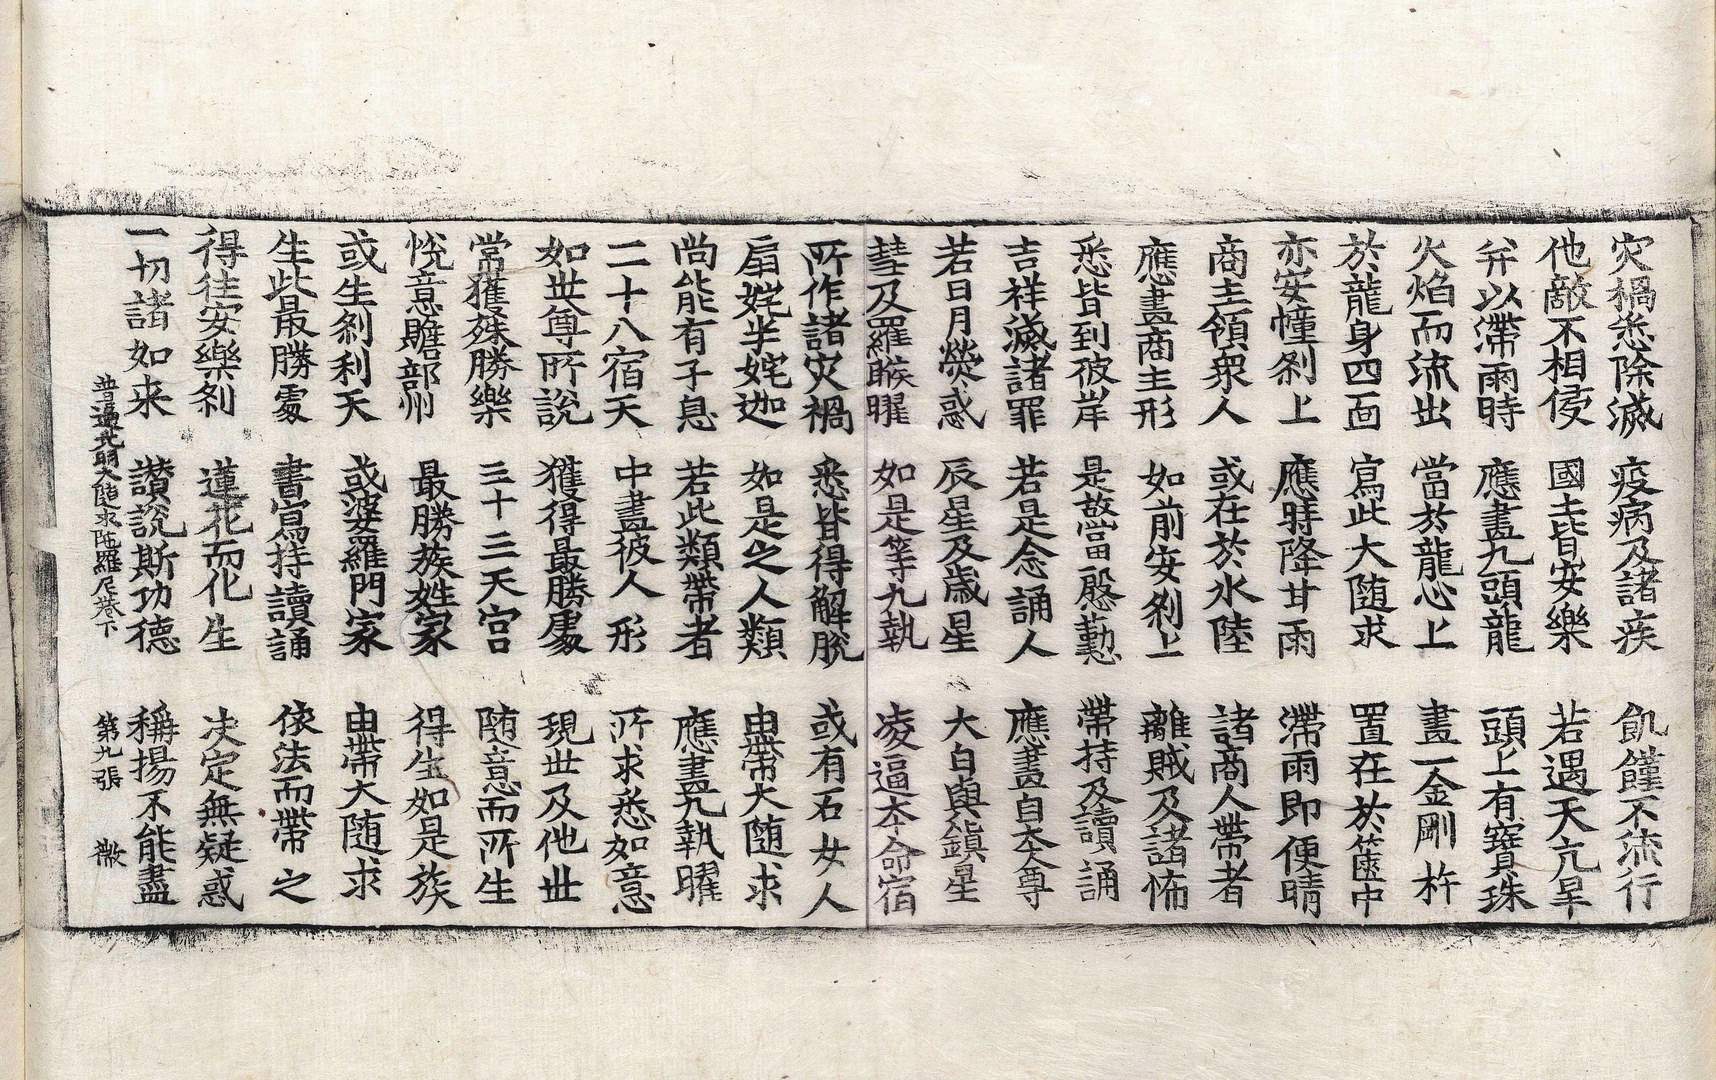 灾禍悉除滅 疫病及諸疾 飢饉不流行
他敵不相侵 國土皆安樂 若遇天亢旱
并以滯雨時 應畫九頭龍 頭上有寶珠
火焰而流出 當於龍心上 畫一金剛杵
於龍身四面 寫此大随求 置在於篋中
亦安幢刹上 應時降甘雨 滯雨即便晴
商主領衆人 或在於水陸 諸商人帶者
應畫商主形 如前安刹上 離賊及諸怖
悉皆到彼岸 是故當慇懃 帶持及讀誦
吉祥滅諸罪 若是念誦人 應畫自本尊
若日月熒惑 辰星及歲星 大白與鎮星
彗及羅睺曜 如是等九執 凌逼本命宿
所作諸灾禍 悉皆得解脫 或有石女人
扇姹半姹迦 如是之人類 由帶大随求
尚能有子息 若此類帶者 應畫九執曜
二十八宿天 中畫彼人形 所求悉如意
如世尊所說 獲得最勝處 現世及他世
常獲殊勝樂 三十三天宮 随意而所生
悅意贍部州 最勝族姓家 得生如是族
或生刹利天 或婆羅門家 由帶大随求
生此最勝處 書寫持讀誦 依法而帶之
得往安樂刹 蓮花而化生 决定無疑惑
一切諸如来 讃說斯功德 稱揚不能盡
普遍光明大随求陁羅尼卷下 第九張 徴